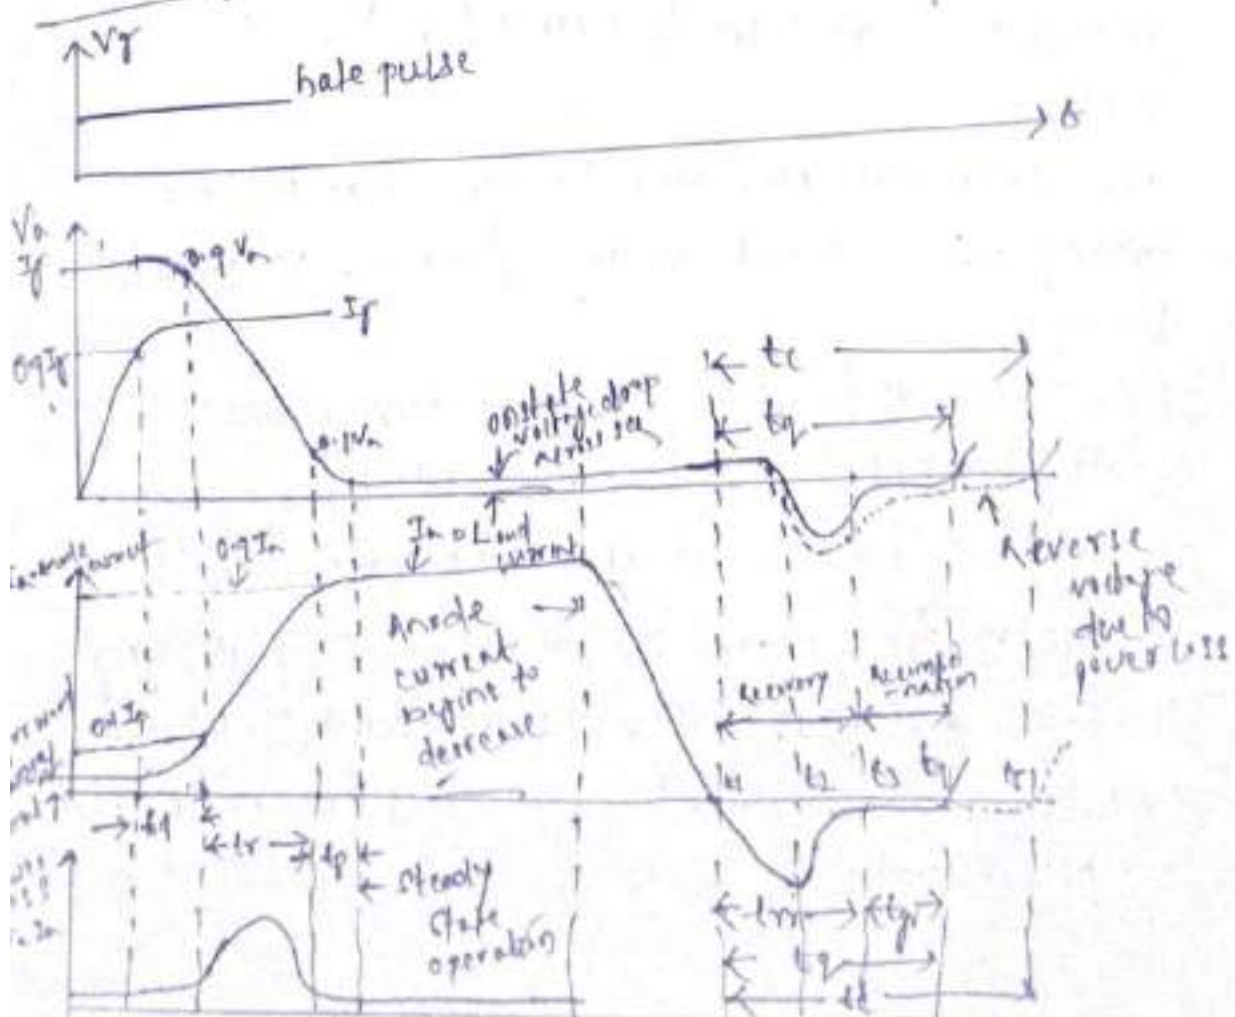 Vg
Gate pulse
t
Va
Ig
0.9 Va
Ig
0.9Ig
0.1Va
onstate
voltage drop
across SCR
tc
tq
Reverse
voltage
due to
power loss
0.9Ia
Ia = Load
current
Anode
current
begins to
decrease
0.1Ia
recovery
recombi
-nation
t1
t2
t3
t4
t5
td
tr
tp
steady
state
operation
trr
tgr
tq
tc